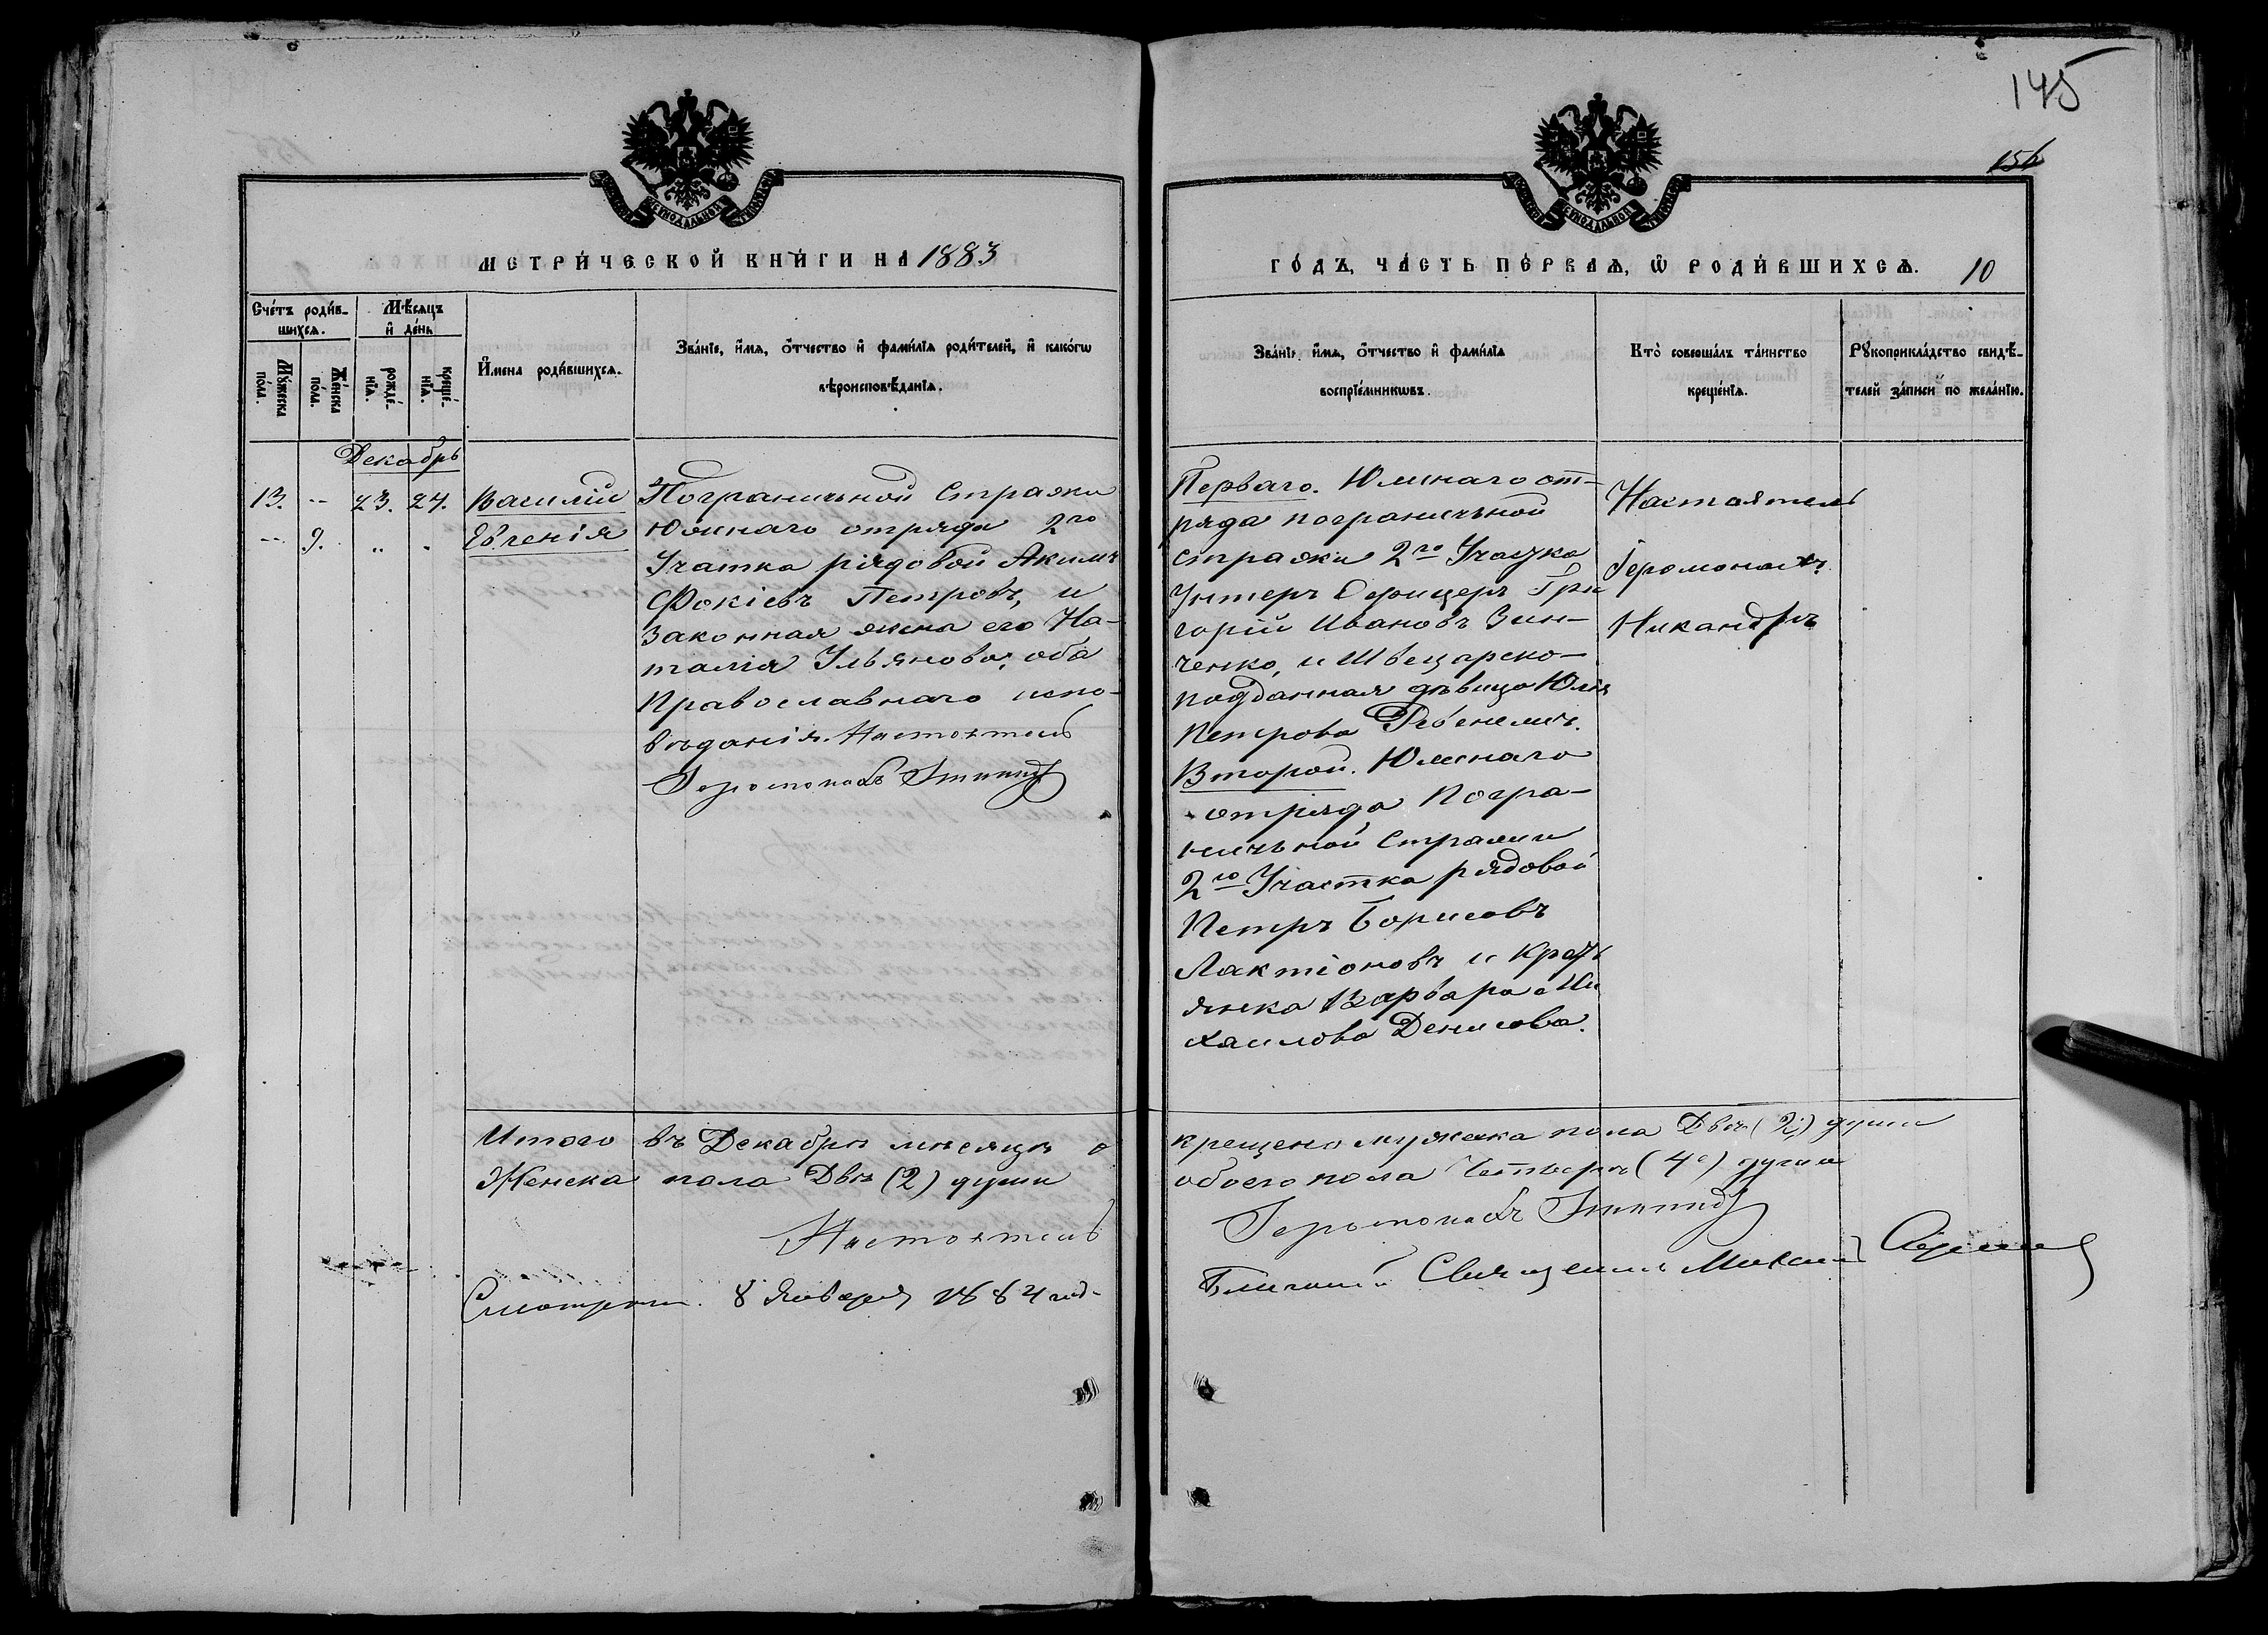 145
156
МЕТРИЧЕСКОЙ КНИГИ НА 1883
ГОДЪ, ЧАСТЬ ПЕРВАЯ, Ѿ РОДИВШИХСЯ. 10
Счетъ родив-
шихся.
Мѣсяцъ
и день
Мужеска
пола.
Женска
пола.
рожде-
нїя.
креще-
нїя.
Имена родившихся.
Званїе, имя, отчество и фамилїя родителей, и какогѡ
вѣроисповѣданїя.
Званїе, имя, отчество и фамилїя
воспрїемникѡвъ.
Кто совершалъ таинство
крещенїя.
Рукоприкладство свидѣ-
телей записи по желанїю.
Декабрь
13. -- 23. 24. Василій
-- 9. „ . Евгенія
Пограничной Стражи
Южнаго отряда 2го
Участка рядовой Акимъ
Фокіевъ Петровъ, и
законная жена его На-
талія Ульянова, оба
Православнаго испо-
вѣданія. Настоятель
Іеромонахъ
Перваго. Южнаго от-
ряда пограничной
стражи 2го Участка
Унтеръ Офицеръ Гри
горій Ивановъ Зин-
ченко, и Швецарско-
подданная дѣвица Юлія
Петрова
Второй. Южнаго
отряда Погра-
ничной Стражи
2го Участка рядовой
Петръ Борисовъ
Лактіоновъ и Крест
янка Варвара Ми
хаилова Денисова.
Настоятель
Іеромонахъ
Никандръ
Итого въ Декабрѣ мѣсяцѣ
крещено мужеска пола Двѣ (2) души
Женска пола Двѣ (2) души
обоего пола Четыре (4) души
Настоятель
Іеромонахъ
Смотрѣлъ. 8 Января 1884 год.
Священникъ